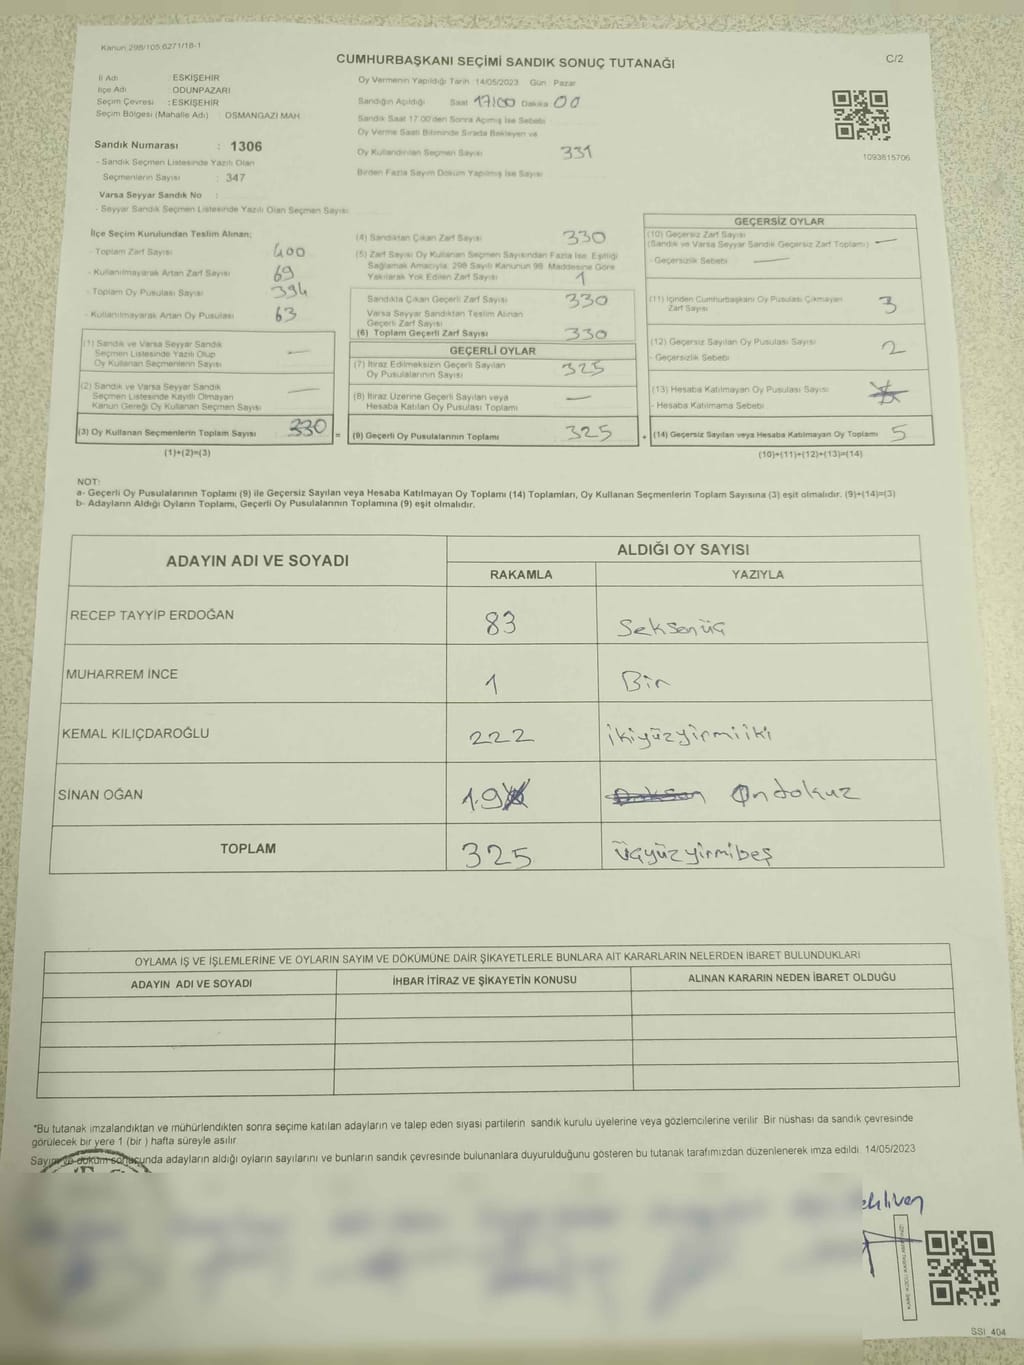 Kanun 298/105,6271/18-1
CUMHURBAŞKANI SEÇİMİ SANDIK SONUÇ TUTANAĞI
C/2
İl Adı : ESKİŞEHİR
İlçe Adı : ODUNPAZARI
Seçim Çevresi : ESKİŞEHİR
Seçim Bölgesi (Mahalle Adı) : OSMANGAZİ MAH.
Oy Vermenin Yapıldığı Tarih : 14/05/2023 Gün : Pazar
Sandığın Açıldığı Saat 17:00 Dakika 00
Sandık Saat 17.00'den Sonra Açmış İse Sebebi
Oy Verme Saati Bitiminde Sırada Bekleyen ve
Oy Kullandırılan Seçmen Sayısı 331
Birden Fazla Sayım Döküm Yapılmış İse Sayısı
1093815706
Sandık Numarası : 1306
- Sandık Seçmen Listesinde Yazılı Olan
Seçmenlerin Sayısı : 347
Varsa Seyyar Sandık No :
- Seyyar Sandık Seçmen Listesinde Yazılı Olan Seçmen Sayısı:
İlçe Seçim Kurulundan Teslim Alınan;
- Toplam Zarf Sayısı 400
- Kullanılmayarak Artan Zarf Sayısı 69
- Toplam Oy Pusulası Sayısı 394
- Kullanılmayarak Artan Oy Pusulası 63
(1) Sandık ve Varsa Seyyar Sandık
Seçmen Listesinde Yazılı Olup
Oy Kullanan Seçmenlerin Sayısı —
(2) Sandık ve Varsa Seyyar Sandık
Seçmen Listesinde Kayıtlı Olmayan
Kanun Gereği Oy Kullanan Seçmen Sayısı —
(3) Oy Kullanan Seçmenlerin Toplam Sayısı 330 =
(1)+(2)=(3)
(4) Sandıktan Çıkan Zarf Sayısı 330
(5) Zarf Sayısı Oy Kullanan Seçmen Sayısından Fazla İse, Eşitliği
Sağlamak Amacıyla, 298 Sayılı Kanunun 98. Maddesine Göre
Yakılarak Yok Edilen Zarf Sayısı 1
Sandıkta Çıkan Geçerli Zarf Sayısı 330
Varsa Seyyar Sandıktan Teslim Alınan
Geçerli Zarf Sayısı
(6) Toplam Geçerli Zarf Sayısı 330
GEÇERLİ OYLAR
(7) İtiraz Edilmeksizin Geçerli Sayılan
Oy Pusulalarının Sayısı 325
(8) İtiraz Üzerine Geçerli Sayılan veya
Hesaba Katılan Oy Pusulası Toplamı —
(9) Geçerli Oy Pusulalarının Toplamı 325 +
GEÇERSİZ OYLAR
(10) Geçersiz Zarf Sayısı
(Sandık ve Varsa Seyyar Sandık Geçersiz Zarf Toplamı) —
- Geçersizlik Sebebi —
(11) İçinden Cumhurbaşkanı Oy Pusulası Çıkmayan
Zarf Sayısı 3
(12) Geçersiz Sayılan Oy Pusulası Sayısı 2
- Geçersizlik Sebebi
(13) Hesaba Katılmayan Oy Pusulası Sayısı
- Hesaba Katılmama Sebebi
(14) Geçersiz Sayılan veya Hesaba Katılmayan Oy Toplamı 5
(10)+(11)+(12)+(13)=(14)
NOT:
a- Geçerli Oy Pusulalarının Toplamı (9) ile Geçersiz Sayılan veya Hesaba Katılmayan Oy Toplamı (14) Toplamları, Oy Kullanan Seçmenlerin Toplam Sayısına (3) eşit olmalıdır. (9)+(14)=(3)
b- Adayların Aldığı Oyların Toplamı, Geçerli Oy Pusulalarının Toplamına (9) eşit olmalıdır.
ADAYIN ADI VE SOYADI
ALDIĞI OY SAYISI
RAKAMLA YAZIYLA
RECEP TAYYİP ERDOĞAN 83 Seksenüç
MUHARREM İNCE 1 Bir
KEMAL KILIÇDAROĞLU 222 ikiyüzyirmiiki
SİNAN OĞAN 19 Ondokuz
TOPLAM 325 üçyüzyirmibeş
OYLAMA İŞ VE İŞLEMLERİNE VE OYLARIN SAYIM VE DÖKÜMÜNE DAİR ŞİKAYETLERLE BUNLARA AİT KARARLARIN NELERDEN İBARET BULUNDUKLARI
ADAYIN ADI VE SOYADI İHBAR İTİRAZ VE ŞİKAYETİN KONUSU ALINAN KARARIN NEDEN İBARET OLDUĞU
*Bu tutanak imzalandıktan ve mühürlendikten sonra seçime katılan adayların ve talep eden siyasi partilerin sandık kurulu üyelerine veya gözlemcilerine verilir. Bir nüshası da sandık çevresinde
görülecek bir yere 1 (bir ) hafta süreyle asılır.
Sayım ve döküm sonucunda adayların aldığı oyların sayılarını ve bunların sandık çevresinde bulunanlara duyurulduğunu gösteren bu tutanak tarafımızdan düzenlenerek imza edildi. 14/05/2023
SSI_404